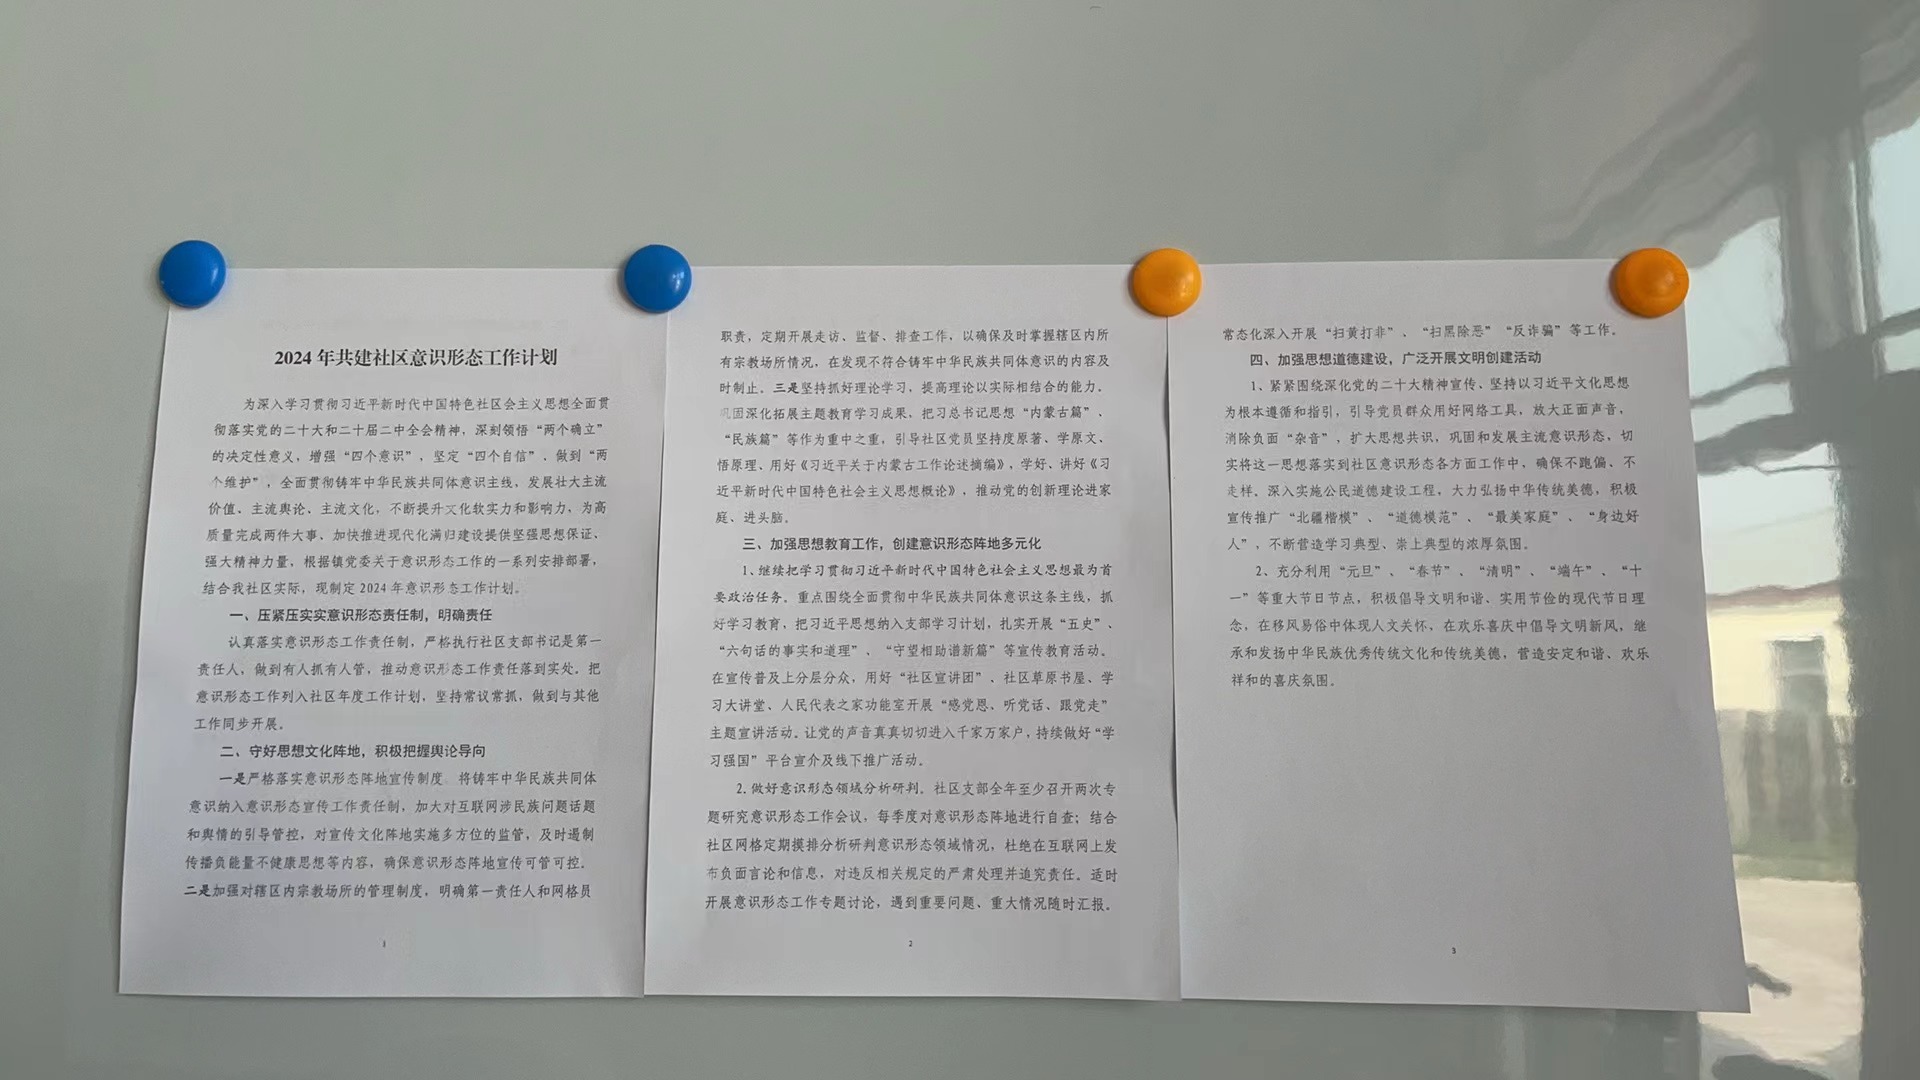 2024 年共建社区意识形态工作计划
为深入学习贯彻习近平新时代中国特色社区会主义思想全面贯
彻落实党的二十大和二十届二中全会精神，深刻领悟“两个确立”
的决定性意义，增强“四个意识”，坚定“四个自信”、做到“两
个维护”，全面贯彻铸牢中华民族共同体意识主线，发展壮大主流
价值、主流舆论、主流文化，不断提升文化软实力和影响力，为高
质量完成两件大事、加快推进现代化满归建设提供坚强思想保证、
强大精神力量，根据镇党委关于意识形态工作的一系列安排部署，
结合我社区实际，现制定 2024 年意识形态工作计划。
一、压紧压实实意识形态责任制，明确责任
认真落实意识形态工作责任制，严格执行社区支部书记是第一
责任人，做到有人抓有人管，推动意识形态工作责任落到实处。把
意识形态工作列入社区年度工作计划，坚持常议常抓，做到与其他
工作同步开展。
二、守好思想文化阵地，积极把握舆论导向
一是严格落实意识形态阵地宣传制度。将铸牢中华民族共同体
意识纳入意识形态宣传工作责任制，加大对互联网涉民族问题话题
和舆情的引导管控，对宣传文化阵地实施多方位的监管，及时遏制
传播负能量不健康思想等内容，确保意识形态阵地宣传可管可控。
二是加强对辖区内宗教场所的管理制度，明确第一责任人和网格员
1
职责，定期开展走访、监督、排查工作，以确保及时掌握辖区内所
有宗教场所情况，在发现不符合铸牢中华民族共同体意识的内容及
时制止。三是坚持抓好理论学习，提高理论以实际相结合的能力。
巩固深化拓展主题教育学习成果，把习总书记思想“内蒙古篇”、
“民族篇”等作为重中之重，引导社区党员坚持度原著、学原文、
悟原理、用好《习近平关于内蒙古工作论述摘编》，学好、讲好《习
近平新时代中国特色社会主义思想概论》，推动党的创新理论进家
庭、进头脑。
三、加强思想教育工作，创建意识形态阵地多元化
1、继续把学习贯彻习近平新时代中国特色社会主义思想最为首
要政治任务。重点围绕全面贯彻中华民族共同体意识这条主线，抓
好学习教育，把习近平思想纳入支部学习计划，扎实开展“五史”、
“六句话的事实和道理”、“守望相助谱新篇”等宣传教育活动。
在宣传普及上分层分众，用好“社区宣讲团”、社区草原书屋、学
习大讲堂、人民代表之家功能室开展“感党恩、听党话、跟党走”
主题宣讲活动。让党的声音真真切切进入千家万家户，持续做好“学
习强国”平台宣介及线下推广活动。
2. 做好意识形态领域分析研判。社区支部全年至少召开两次专
题研究意识形态工作会议，每季度对意识形态阵地进行自查；结合
社区网格定期摸排分析研判意识形态领域情况，杜绝在互联网上发
布负面言论和信息，对违反相关规定的严肃处理并追究责任。适时
开展意识形态工作专题讨论，遇到重要问题、重大情况随时汇报。
2
常态化深入开展“扫黄打非”、“扫黑除恶”“反诈骗”等工作。
四、加强思想道德建设，广泛开展文明创建活动
1、紧紧围绕深化党的二十大精神宣传、坚持以习近平文化思想
为根本遵循和指引，引导党员群众用好网络工具，放大正面声音，
消除负面“杂音”，扩大思想共识，巩固和发展主流意识形态，切
实将这一思想落实到社区意识形态各方面工作中，确保不跑偏、不
走样。深入实施公民道德建设工程，大力弘扬中华传统美德，积极
宣传推广“北疆楷模”、“道德模范”、“最美家庭”、“身边好
人”，不断营造学习典型、崇上典型的浓厚氛围。
2、充分利用“元旦”、“春节”、“清明”、“端午”、“十
一”等重大节日节点，积极倡导文明和谐、实用节俭的现代节日理
念，在移风易俗中体现人文关怀，在欢乐喜庆中倡导文明新风，继
承和发扬中华民族优秀传统文化和传统美德，营造安定和谐、欢乐
祥和的喜庆氛围。
3